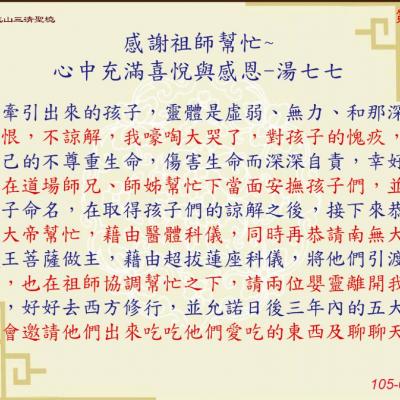 山三清聖境
感謝祖師幫忙~
心中充滿喜悅與感恩-湯七七
牽引出來的孩子，靈體是虛弱、無力、和那深
恨，不諒解，我嚎啕大哭了，對孩子的愧疚，
己的不尊重生命，傷害生命而深深自責，幸好
在道場師兄、師姊幫忙下當面安撫孩子們，並
子命名，在取得孩子們的諒解之後，接下來恭
大帝幫忙，藉由醫體科儀，同時再恭請南無大
王菩薩做主，藉由超拔蓮座科儀，將他們引渡
，也在祖師協調幫忙之下，請兩位嬰靈離開我
，好好去西方修行，並允諾日後三年內的五大
會邀請他們出來吃吃他們愛吃的東西及聊聊天
105-